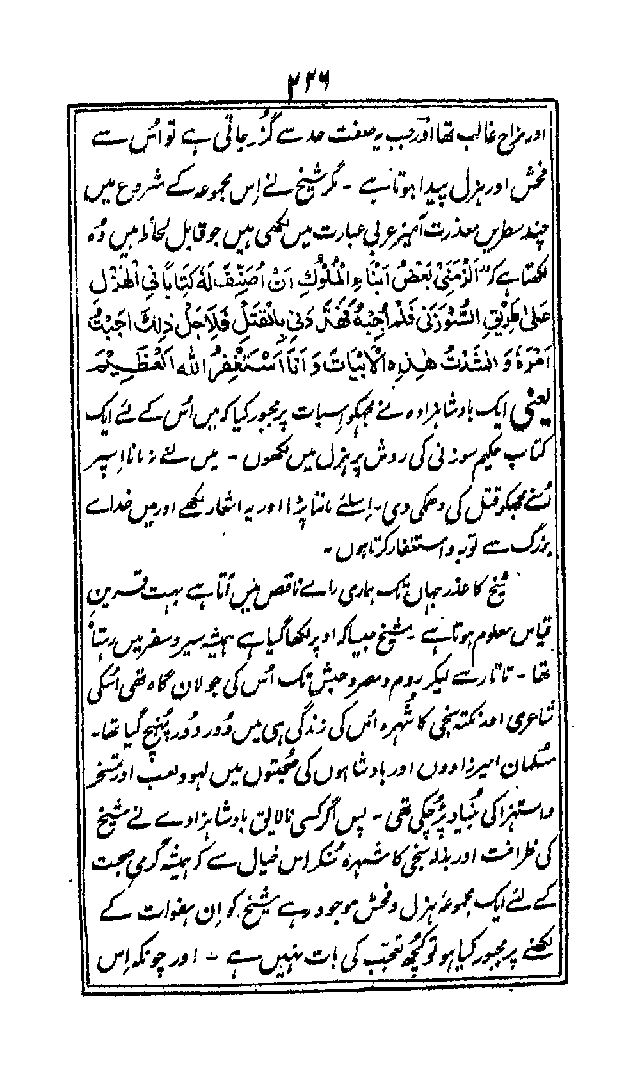 ۲۲۶
اور مزاح غالب تھا اور جب یہ صفت حد سے گذر جاتی ہے تو اُس سے
فحش اور ہزل پیدا ہوتا ہے - مگر شیخ نے اِس مجموعہ کے شروع میں
چند سطریں معذرت آمیز عربی عبارت میں لکھی ہیں جو قابل لحاظ ہیں وُہ
لکھتا ہے کہ "اَلْزَمَنِیْ بَعْضُ اَبْنَاءِ الْمُلُوْكِ اَنْ اُصَنِّفَ لَهُ كِتَابًا فِی الْهَزْلِ
عَلٰی طَرِيْقِ السُّوْزَنِیْ فَلَمْ اُجِبْهُ فَهَدَّدَنِیْ بِالْقَتْلِ فَلِاَجْلِ ذٰلِكَ اَجَبْتُ
اَمْرَهُ وَ اَنْشَدْتُ هٰذِهِ الْاَبْيَاتَ وَ اَنَا اَسْتَغْفِرُ اللهَ الْعَظِيْمَ
یعنی ایک بادشاہزادہ نے مجھکو اسبات پر مجبور کیا کہ میں اُس کے لئے ایک
کتاب حکیم سوزنی کی روش پر ہزل میں لکھوں - میں نے نہ مانا اسپر
اُسنے مجھکو قتل کی دھمکی دی - اِسلئے ماننا پڑا اور یہ اشعار لکھے اور میں خداے
بزرگ سے توبہ و استغفار کرتا ہوں -
شیخ کا عذر جہاں تک ہماری راے ناقص میں آتا ہے بہت قرین
قیاس معلوم ہوتا ہے - شیخ جیسا کہ اوپر لکھا گیا ہے ہمیشہ سیر و سفر میں رہتا
تھا - تاتار سے لیکر روم و مصر و حبش تک اُس کی جولان گاہ تھی اُسکی
شاعری اور نکتہ سنجی کا شُہرہ اُس کی زندگی ہی میں دُور دُور پُہنچ گیا تھا -
مُسلمان امیرزادوں اور بادشاہوں کی صُحبتوں میں لہو و لعب اور تمسخر
و استہزا کی بُنیاد پڑ چکی تھی - پس اگر کسی نالایق بادشاہزادے نے شیخ
کی ظرافت اور بذلہ سنجی کا شُہرہ سُنکر اس خیال سے کہ ہمیشہ گرمیِ صحبت
کے لئے ایک مجموعۂ ہزل و فحش موجود رہے شیخ کو اِن ہفوات کے
لکھنے پر مجبور کیا ہو تو کُچھ تعجّب کی بات نہیں ہے - اور چونکہ اِس